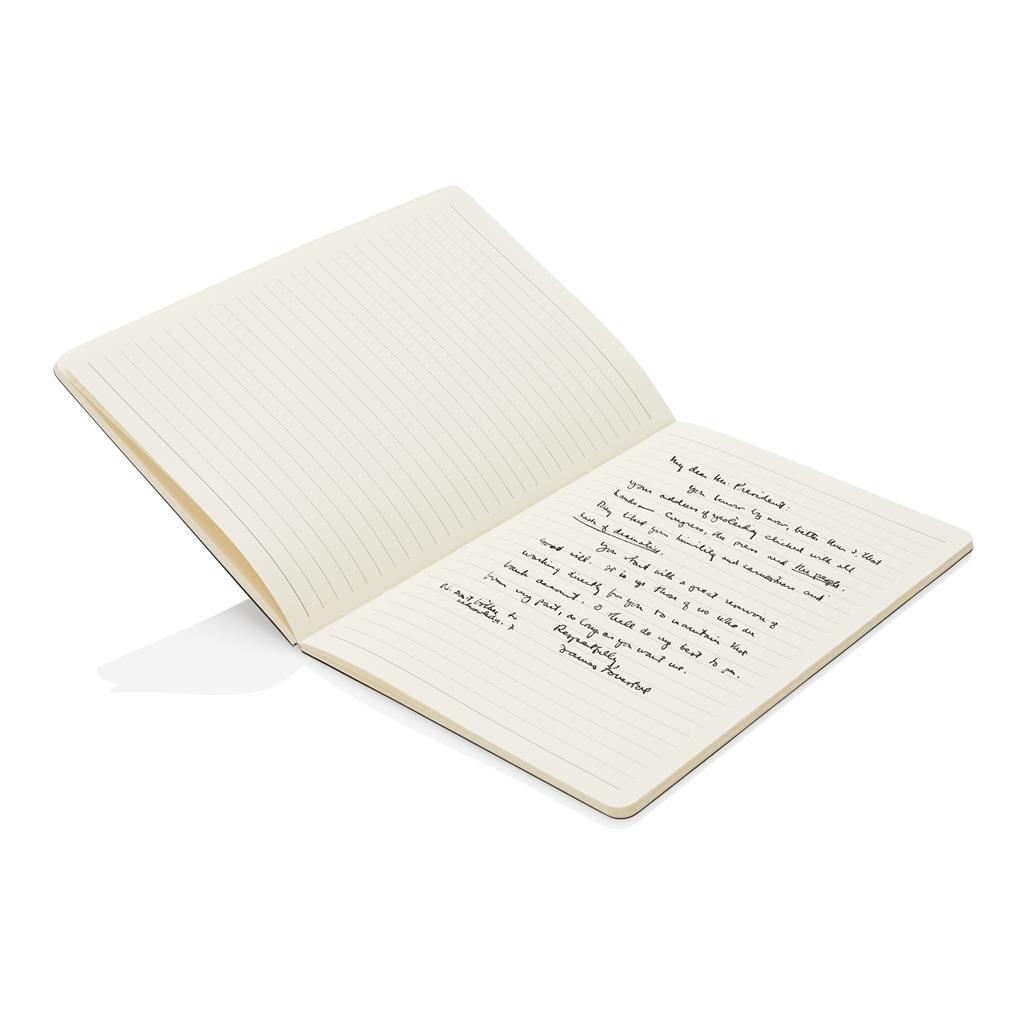 My dear Mr. President:
You know by now, better than I, that
your address of yesterday clicked with all
hands — Congress, the press and the people.
They liked your humility and earnestness and
lack of dramatics.
You start with a great reservoir of
Good will. It is up those of us who are
working directly for you to maintain that
bank account. I shall do my best to you.
from my part, as long as you want me.
Respectfully,
James Forrestal